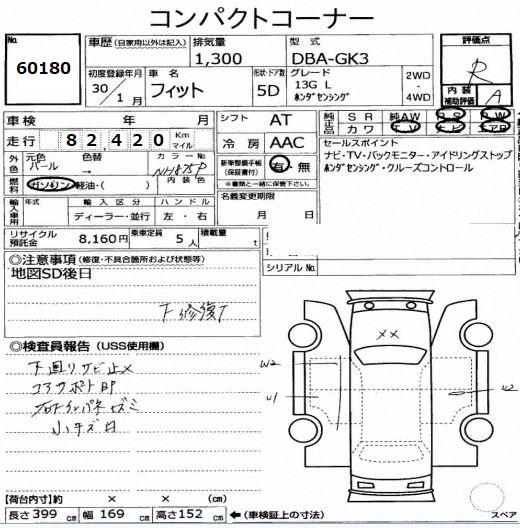 コンパクトコーナー
No. 60180
車歴 (自家用以外は記入) 排気量 1,300 型式 DBA-GK3
評価点 R
初度登録年月 30年 1月 車名 フィット 形状・ドア数 5D グレード 13G L ﾎﾝﾀﾞｾﾝｼﾝｸﾞ 2WD・4WD
内装補助評価 A
車検 年 月 シフト AT 純正品 SR 純AW PS PW
カワ TV ナビ エアB
走行 82,420 Km マイル 冷房 AAC
セールスポイント
ナビ・TV・バックモニター・アイドリングストップ
ﾎﾝﾀﾞｾﾝｼﾝｸﾞ・クルーズコントロール
外色 元色 パール 色替 → カラーNo. NH875P
新車整備手帳 (保証書付) 有・無
※書類と一緒に保管下さい。
燃料 ガソリン・軽油・( ) 内装色
輸入車用 年式 輸入区分 ディーラー・並行 ハンドル 左・右
名義変更期限 月 日
リサイクル預託金 8,160円 乗車定員 5人 積載量 t
シリアルNo.
◎注意事項 (修復・不具合箇所および状態等)
地図SD後日
下修復了
◎検査員報告 (USS使用欄)
下廻りサビ止メ
コアサポート
小キズ
XX
W2
U1
U2
【荷台内寸】約 × × (cm)
長さ 399 cm 幅 169 cm 高さ 152 cm ←(車検証上の寸法)
スペア